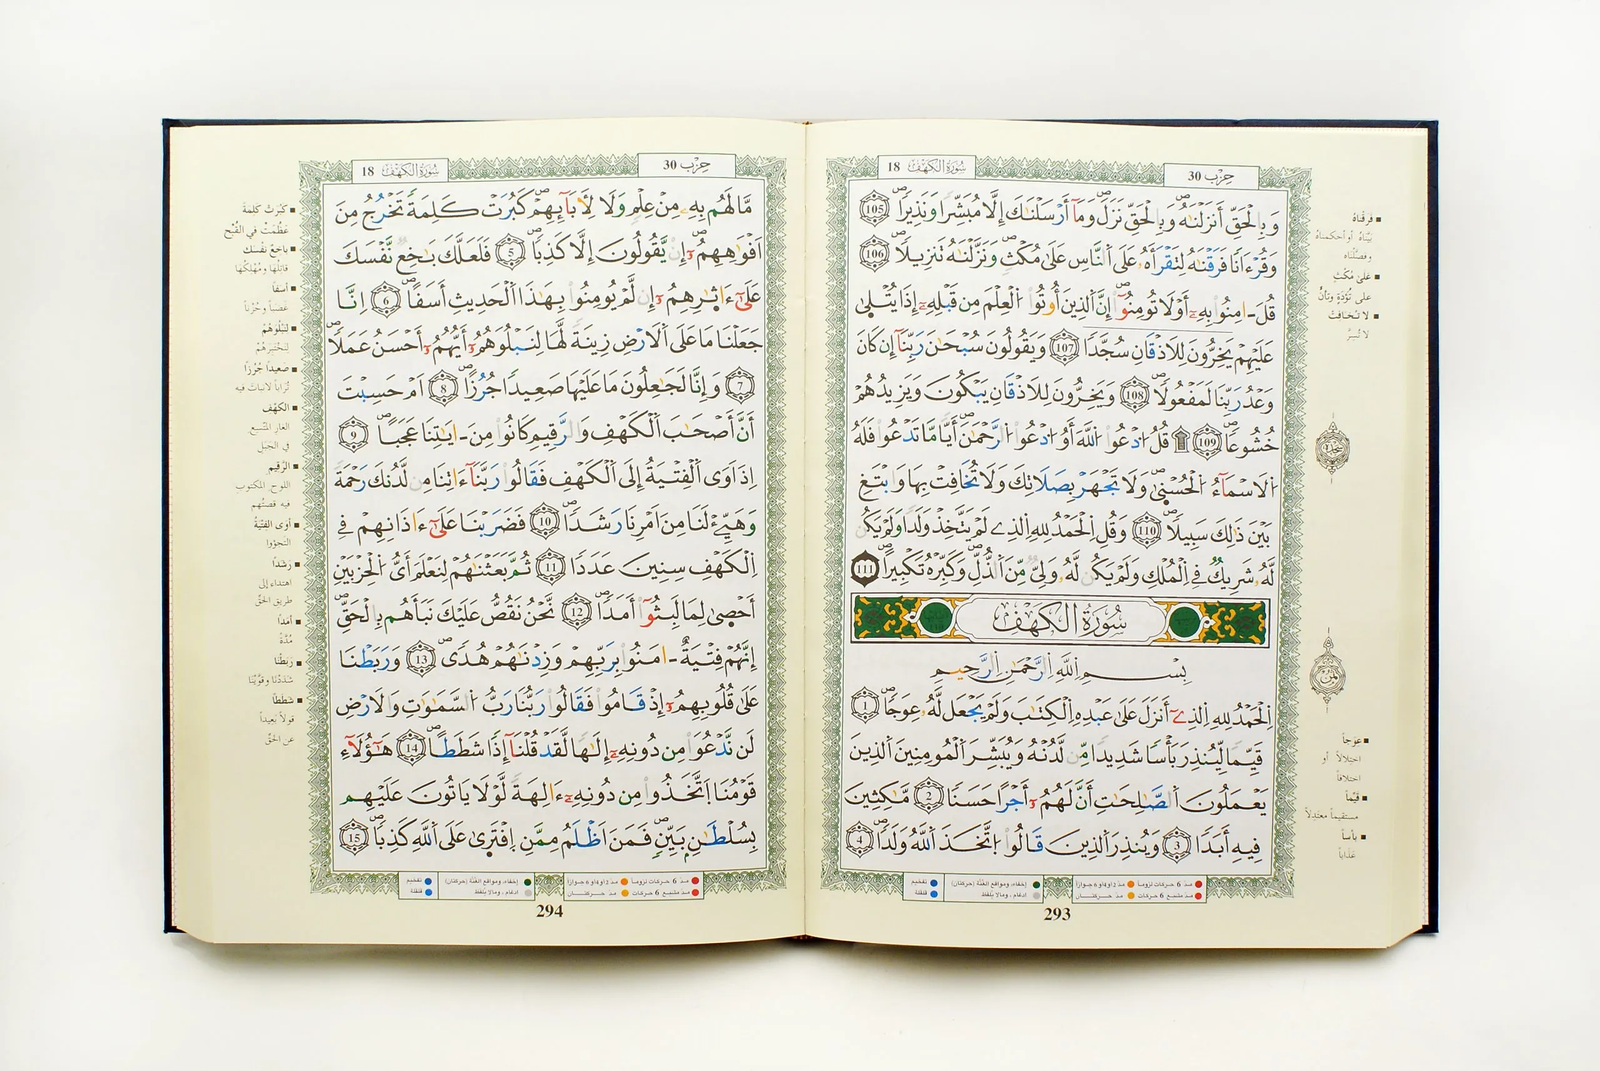 سُورَةُ الكَهْفِ 18
حِزْب 30
وَبِالْحَقِّ أَنزَلْنَٰهُ وَبِالْحَقِّ نَزَلَ وَمَا أَرْسَلْنَٰكَ إِلَّا مُبَشِّراً وَنَذِيراً 105
وَقُرْءَاناً فَرَقْنَٰهُ لِتَقْرَأَهُ عَلَى النَّاسِ عَلَىٰ مُكْثٍ وَنَزَّلْنَٰهُ تَنزِيلاً 106
قُلَ ـ امِنُوا بِهِ أَوْ لَا تُومِنُوا إِنَّ الَّذِينَ أُوتُوا الْعِلْمَ مِن قَبْلِهِ إِذَا يُتْلَىٰ
عَلَيْهِمْ يَخِرُّونَ لِلاَذْقَانِ سُجَّداً 107 وَيَقُولُونَ سُبْحَٰنَ رَبِّنَا إِن كَانَ
وَعْدُ رَبِّنَا لَمَفْعُولاً 108 وَيَخِرُّونَ لِلاَذْقَانِ يَبْكُونَ وَيَزِيدُهُمْ
خُشُوعاً 109 ۩ قُلُ ادْعُوا اللَّهَ أَوُ ادْعُوا الرَّحْمَٰنَ أَيّاً مَّا تَدْعُوا فَلَهُ
الاَسْمَاءُ الْحُسْنَىٰ وَلَا تَجْهَرْ بِصَلَاتِكَ وَلَا تُخَافِتْ بِهَا وَابْتَغِ
بَيْنَ ذَٰلِكَ سَبِيلاً 110 وَقُلِ الْحَمْدُ لِلهِ الَّذِے لَمْ يَتَّخِذْ وَلَداً وَلَمْ يَكُن
لَّهُ شَرِيكٌ فِي الْمُلْكِ وَلَمْ يَكُن لَّهُ وَلِيٌّ مِّنَ الذُّلِّ وَكَبِّرْهُ تَكْبِيراً 111
سُورَةُ الكَهْفِ
بِسْمِ اللَّهِ الرَّحْمَٰنِ الرَّحِيمِ
الْحَمْدُ لِلهِ الَّذِے أَنزَلَ عَلَىٰ عَبْدِهِ الْكِتَٰبَ وَلَمْ يَجْعَل لَّهُ عِوَجاً 1
قَيِّماً لِّيُنذِرَ بَأْساً شَدِيداً مِّن لَّدُنْهُ وَيُبَشِّرَ الْمُومِنِينَ الَّذِينَ
يَعْمَلُونَ الصَّٰلِحَٰتِ أَنَّ لَهُمُ أَجْراً حَسَناً 2 مَّٰكِثِينَ
فِيهِ أَبَداً 3 وَيُنذِرَ الَّذِينَ قَالُوا اتَّخَذَ اللَّهُ وَلَداً 4
فَرَقْنَاهُ
بَيَّنَاهُ أو أحكمناه
وفصّلناه
عَلَى مُكْثٍ
على تُؤَدَةٍ وتأنٍّ
لا تُخَافِتْ
لا تُسِرَّ
عِوَجاً
اختلالاً أو
اختلافاً
قَيِّماً
مستقيماً معتدلاً
بَأْساً
عَذَاباً
تفخيم
قلقلة
إخفاء، ومواقع الغُنَّة (حركتان)
ادغام، ومالا يُلفَظ
مدّ 6 حركات لزوماً
مدّ 2 أو 4 أو 6 جوازاً
مدّ مشبع 6 حركات
مدّ حركتان
293
سُورَةُ الكَهْفِ 18
حِزْب 30
مَّا لَهُم بِهِ مِنْ عِلْمٍ وَلَا لِأَبَآئِهِمْ كَبُرَتْ كَلِمَةً تَخْرُجُ مِنَ
اَفْوَٰهِهِمُ إِن يَّقُولُونَ إِلَّا كَذِباً 5 فَلَعَلَّكَ بَٰخِعٌ نَّفْسَكَ
عَلَىٰ ءَاثَٰرِهِمُ إِن لَّمْ يُومِنُوا بِهَٰذَا الْحَدِيثِ أَسَفاً 6 اِنَّا
جَعَلْنَا مَا عَلَى الاَرْضِ زِينَةً لَّهَا لِنَبْلُوَهُمُ أَيُّهُمُ أَحْسَنُ عَمَلاً
7 وَإِنَّا لَجَٰعِلُونَ مَا عَلَيْهَا صَعِيداً جُرُزاً 8 اَمْ حَسِبْتَ
أَنَّ أَصْحَٰبَ الْكَهْفِ وَالرَّقِيمِ كَانُوا مِنَ ـ ايَٰتِنَا عَجَباً 9
إِذَ اَوَى الْفِتْيَةُ إِلَى الْكَهْفِ فَقَالُوا رَبَّنَا ءَاتِنَا مِن لَّدُنكَ رَحْمَةً
وَهَيِّئْ لَنَا مِنَ اَمْرِنَا رَشَداً 10 فَضَرَبْنَا عَلَىٰ ءَاذَانِهِمْ فِي
الْكَهْفِ سِنِينَ عَدَداً 11 ثُمَّ بَعَثْنَٰهُمْ لِنَعْلَمَ أَيُّ الْحِزْبَيْنِ
أَحْصَىٰ لِمَا لَبِثُوا أَمَداً 12 نَّحْنُ نَقُصُّ عَلَيْكَ نَبَأَهُم بِالْحَقِّ
إِنَّهُمْ فِتْيَةٌ ـ امَنُوا بِرَبِّهِمْ وَزِدْنَٰهُمْ هُدًى 13 وَرَبَطْنَا
عَلَىٰ قُلُوبِهِمُ إِذْ قَامُوا فَقَالُوا رَبُّنَا رَبُّ السَّمَٰوَٰتِ وَالاَرْضِ
لَن نَّدْعُوَا مِن دُونِهِ إِلَٰهاً لَّقَدْ قُلْنَا إِذاً شَطَطاً 14 هَٰؤُلَاءِ
قَوْمُنَا اَتَّخَذُوا مِن دُونِهِ ءَالِهَةً لَّوْلَا يَاتُونَ عَلَيْهِم
بِسُلْطَٰنٍ بَيِّنٍ فَمَنَ اَظْلَمُ مِمَّنِ اِفْتَرَىٰ عَلَى اللَّهِ كَذِباً 15
كَبُرَتْ كَلِمَةً
عَظُمَتْ في القُبْحِ
بَاخِعٌ نَفْسَكَ
قاتلُها ومُهْلِكُها
أَسَفاً
غضباً وحُزْناً
لِنَبْلُوَهُمْ
لِنَخْتَبِرَهُمْ
صَعِيداً جُرُزاً
تُرَاباً لا نبات فيه
الكَهْف
الغار المتّسع
في الجبل
الرَّقِيم
اللوح المكتوب
فيه قصتُهم
أَوَى الفِتْيَةُ
التجؤوا
رَشَداً
اهتداء إلى
طريق الحقّ
أَمَداً
مُدَّةً
رَبَطْنَا
شَدَدْنا وقوّيْنا
شَطَطاً
قولاً بَعِيداً
عن الحَقِّ
تفخيم
قلقلة
إخفاء، ومواقع الغُنَّة (حركتان)
ادغام، ومالا يُلفَظ
مدّ 6 حركات لزوماً
مدّ 2 أو 4 أو 6 جوازاً
مدّ مشبع 6 حركات
مدّ حركتان
294